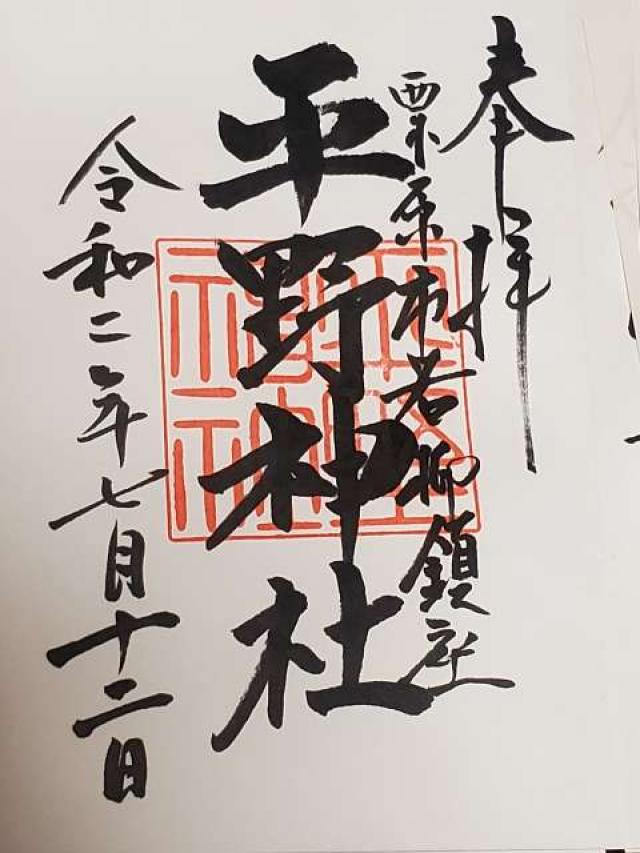 奉拝
栗原市若柳鎮座
平野神社
令和二年七月十二日